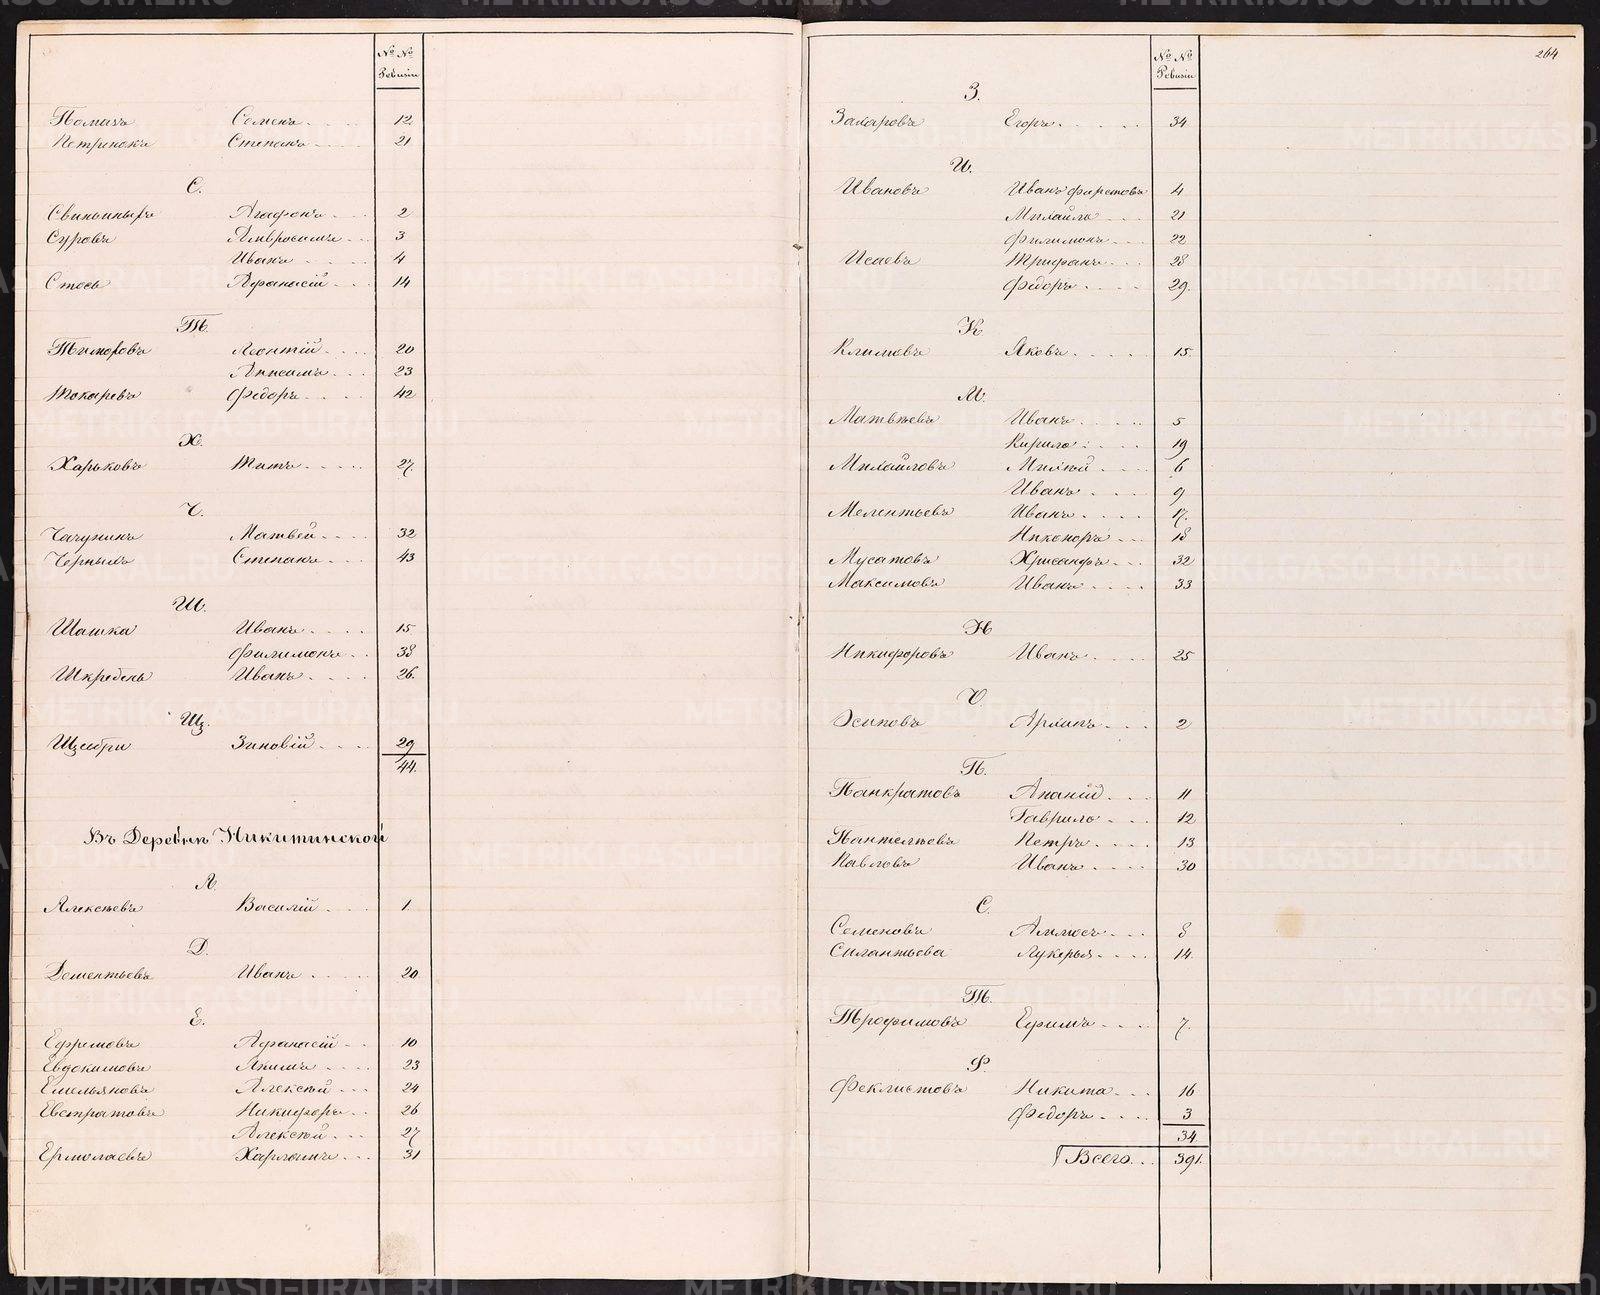 № №
Ревизіи
Помазъ Семенъ 12
Петренокъ Степанъ 21
С.
Свиньиныхъ Агафонъ 2
Суровъ Амвросимъ 3
Иванъ 4
Стось Афанасій 14
Т.
Тимофовъ Леонтій 20
Анисимъ 23
Токаревъ Федоръ 42
Х.
Харьковъ Титъ 27
Ч.
Чачунинъ Матвей 32
Черныхъ Степанъ 43
Ш.
Шашка Иванъ 15
Филимонъ 38
Шкребень Иванъ 26.
Щ.
Щербри Зиновій 29
44.
Въ Деревнѣ Никитинской
А.
Алексѣевъ Василій 1.
Д.
Дементьевъ Иванъ 20
Е.
Ефремовъ Афанасій 10
Евдокимовъ Акимъ 23
Емельяновъ Алексѣй 24
Евстратовъ Никифоръ 26
Алексѣй 27
Ермолаевъ Харлампъ 31
264
№ №
Ревизіи
З.
Захаровъ Егоръ 34
И.
Ивановъ Иванъ 4
Михайло 21
Филимонъ 22
Исаевъ Трифанъ 28
Федоръ 29.
К
Климовъ Яковъ 15.
М.
Матвѣевъ Иванъ 5
Кирило 19
Михайловъ Михѣй 6
Иванъ 9
Мелентьевъ Иванъ 17.
Никоноръ 18
Мусатовъ Хрисанфъ 32
Максимовъ Иванъ 33
Н
Никифоровъ Иванъ 25
О.
Осиповъ Архипъ 2
П.
Панкратовъ Ананій 11
Гаврило 12
Пантелѣевъ Петръ 13
Павловъ Иванъ 30
С.
Семеновъ 8
Силантьева Лукерья 14.
Т.
Трофимовъ Ефимъ 7.
Ф.
Феклистовъ Никита 16
Федоръ 3
34.
Всего 391.